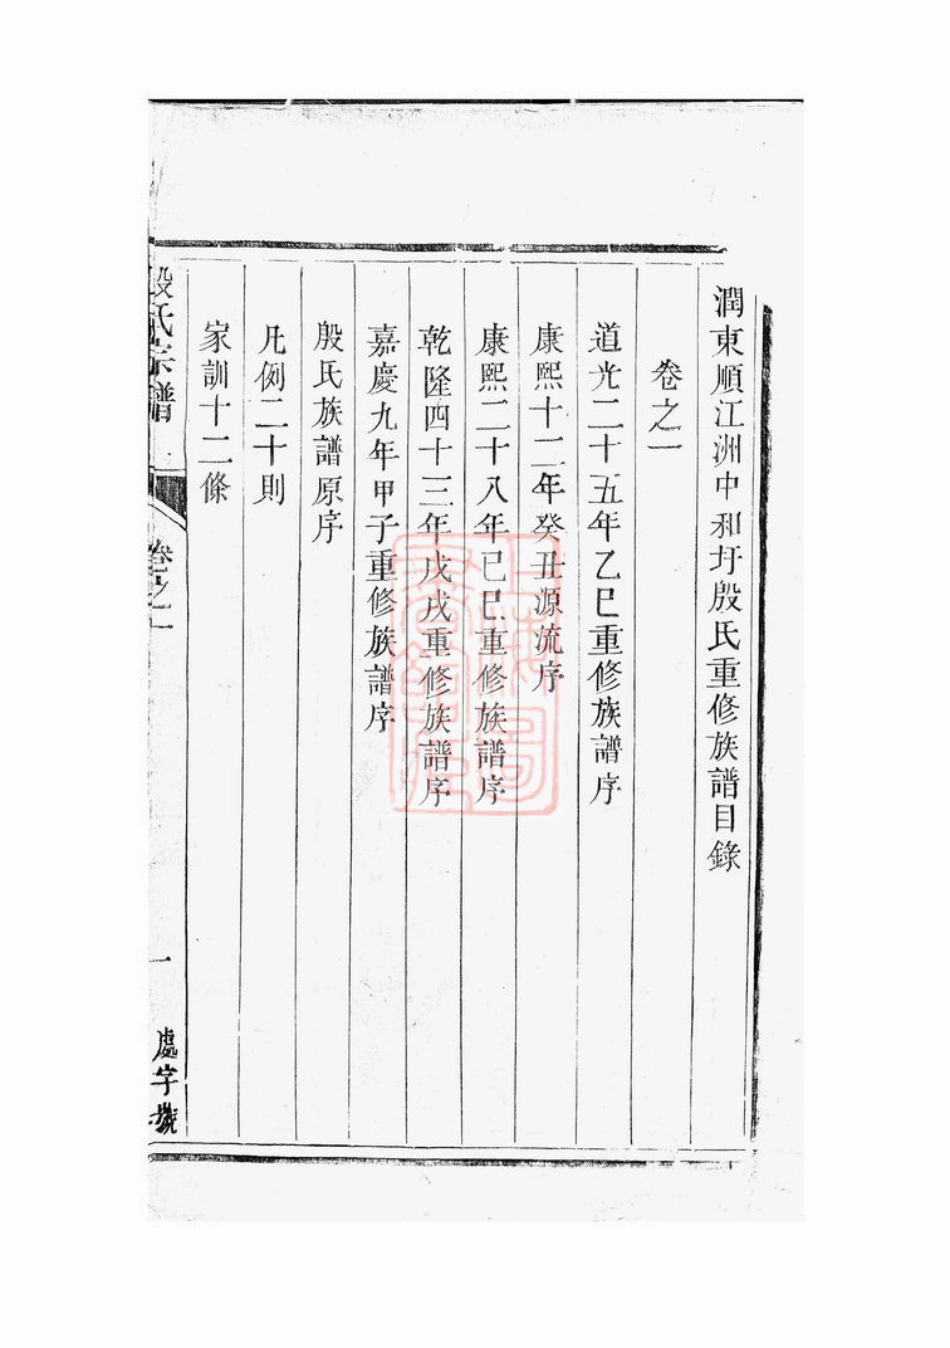 潤東順江洲中和圩殷氏重修族譜目錄
卷之一
道光二十五年乙巳重修族譜序
康熙十二年癸丑源流序
康熙二十八年己巳重修族譜序
乾隆四十三年戊戌重修族譜序
嘉慶九年甲子重修族譜序
殷氏族譜原序
凡例二十則
家訓十二條
殷氏宗譜
卷之一
一
處字號